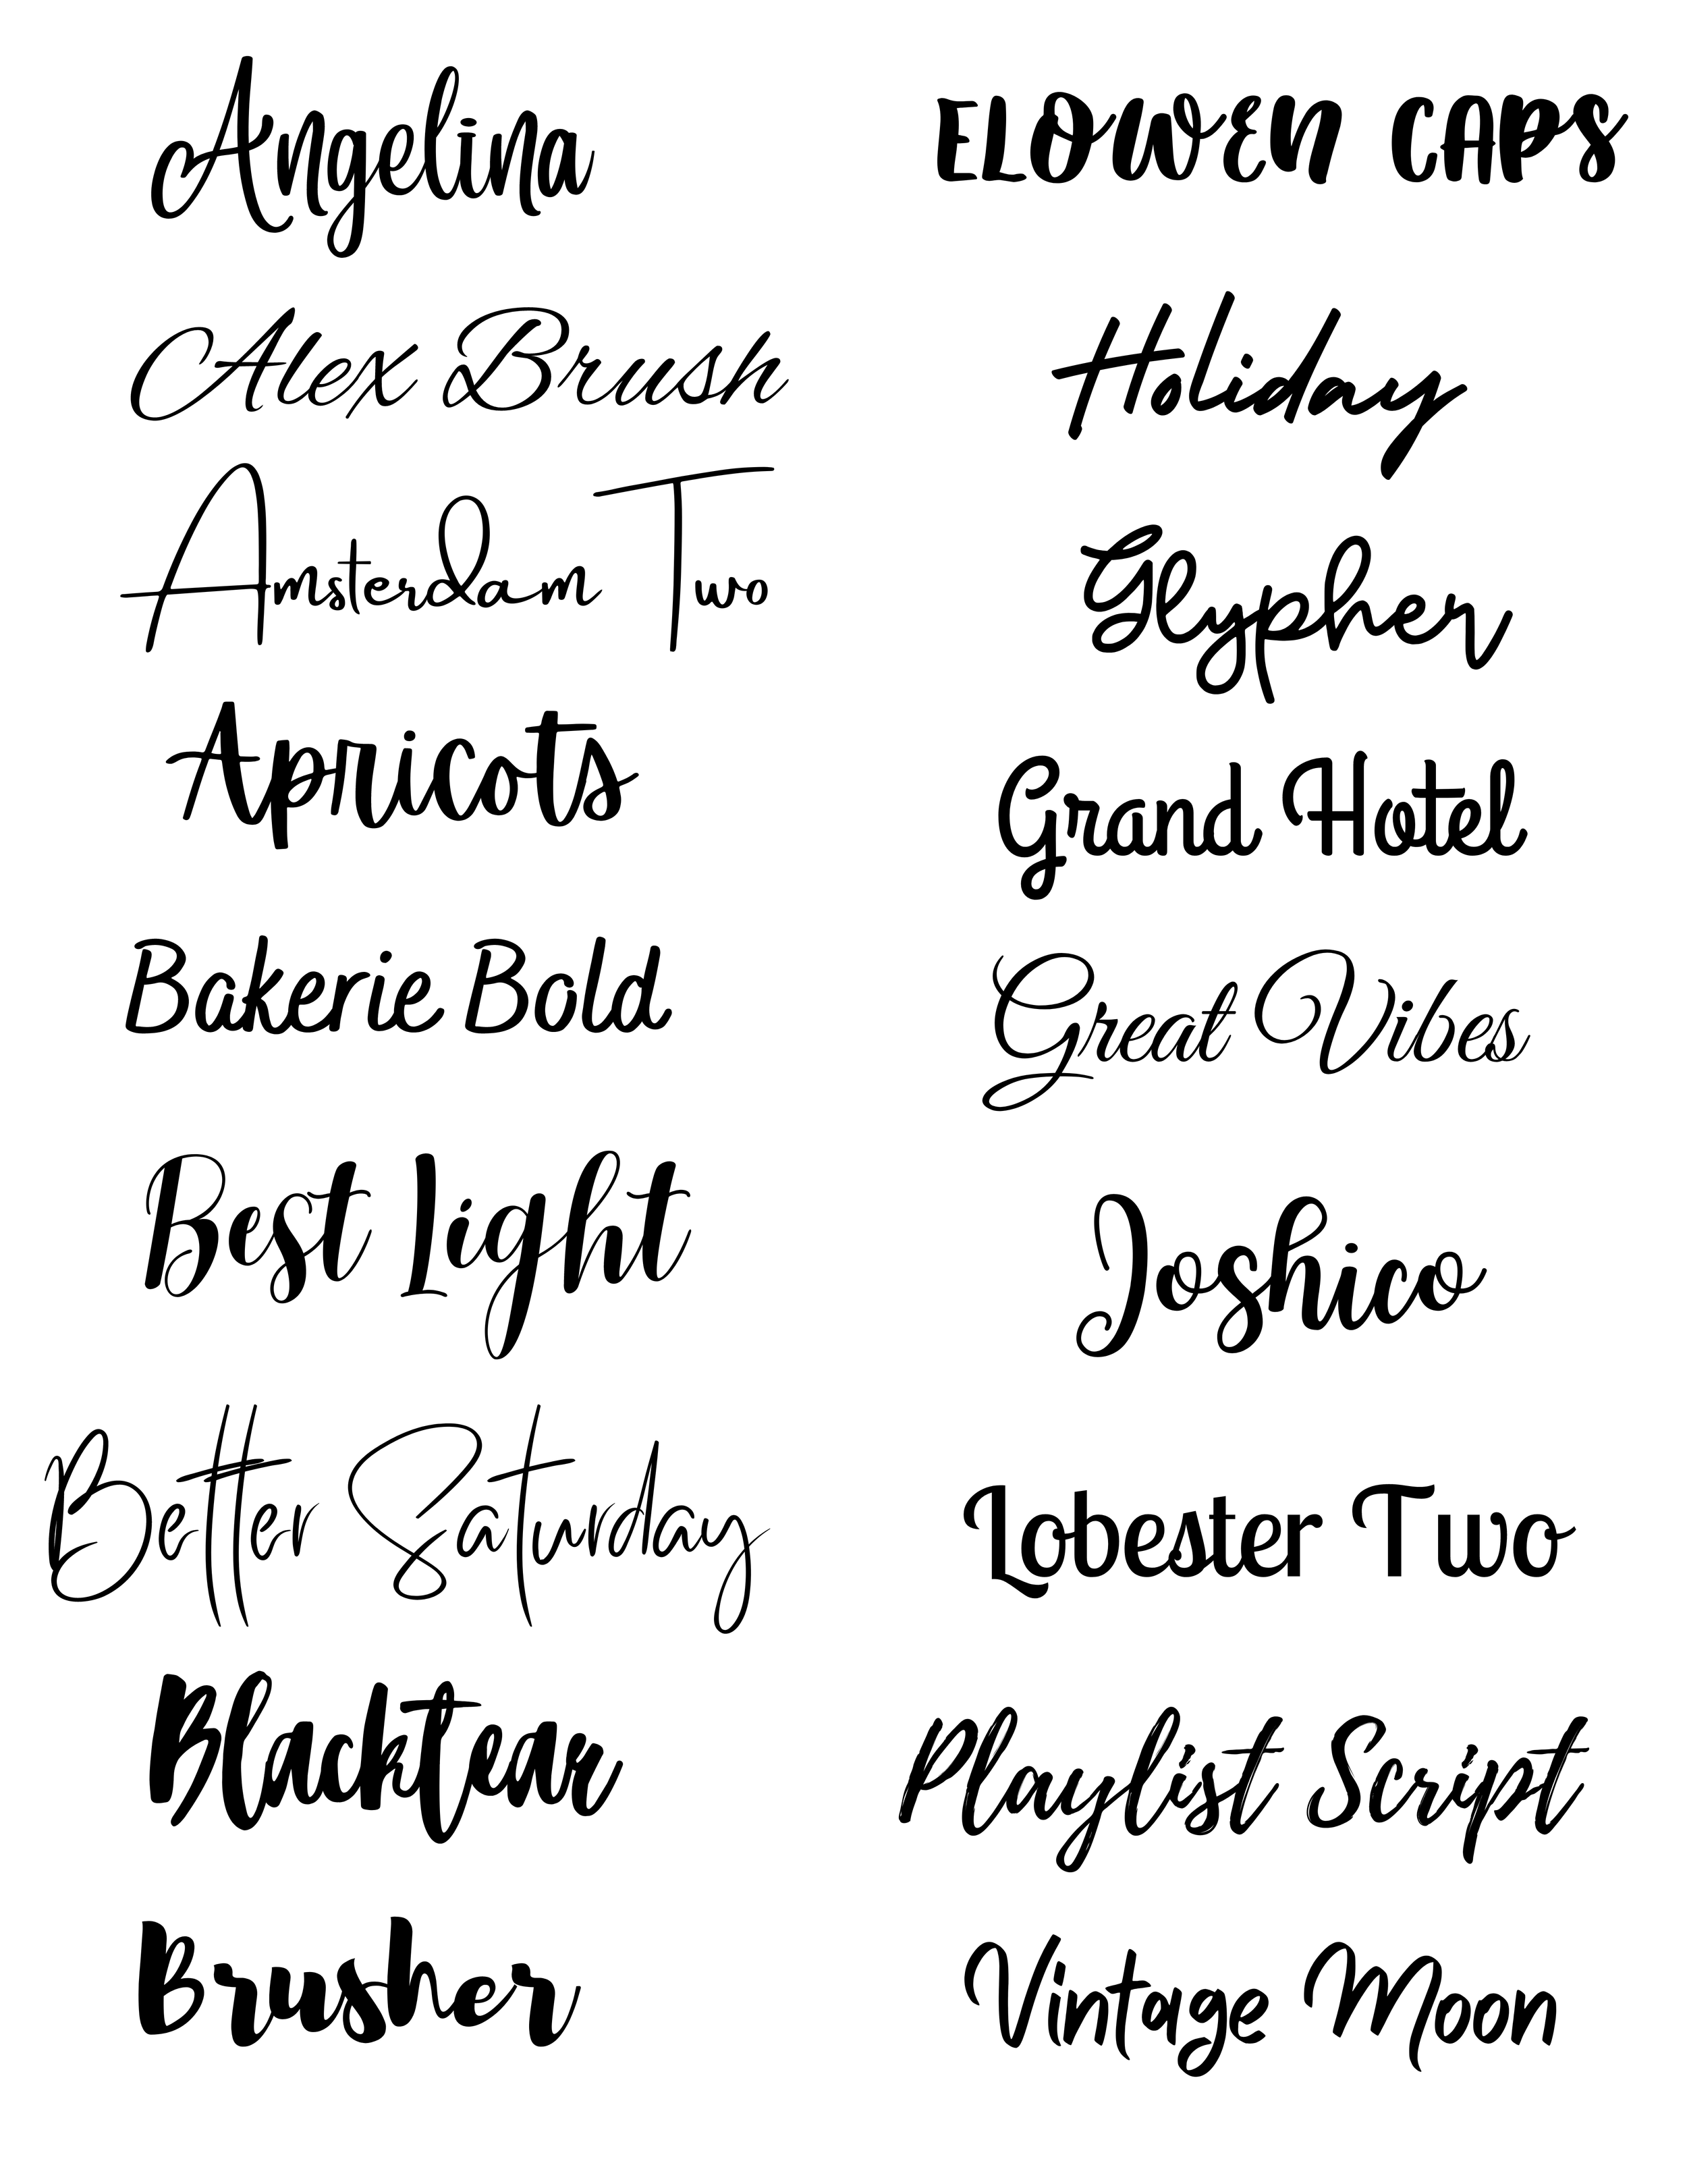 Angelina
Alex Brush
Amsterdam Two
Apricots
Bakerie Bold
Best Light
Better Saturday
Blacktear
Brusher
ELOWEN CAPS
Holiday
Glypher
Grand Hotel
Great Vibes
Joshico
Lobster Two
Playlist Script
Vintage Moon